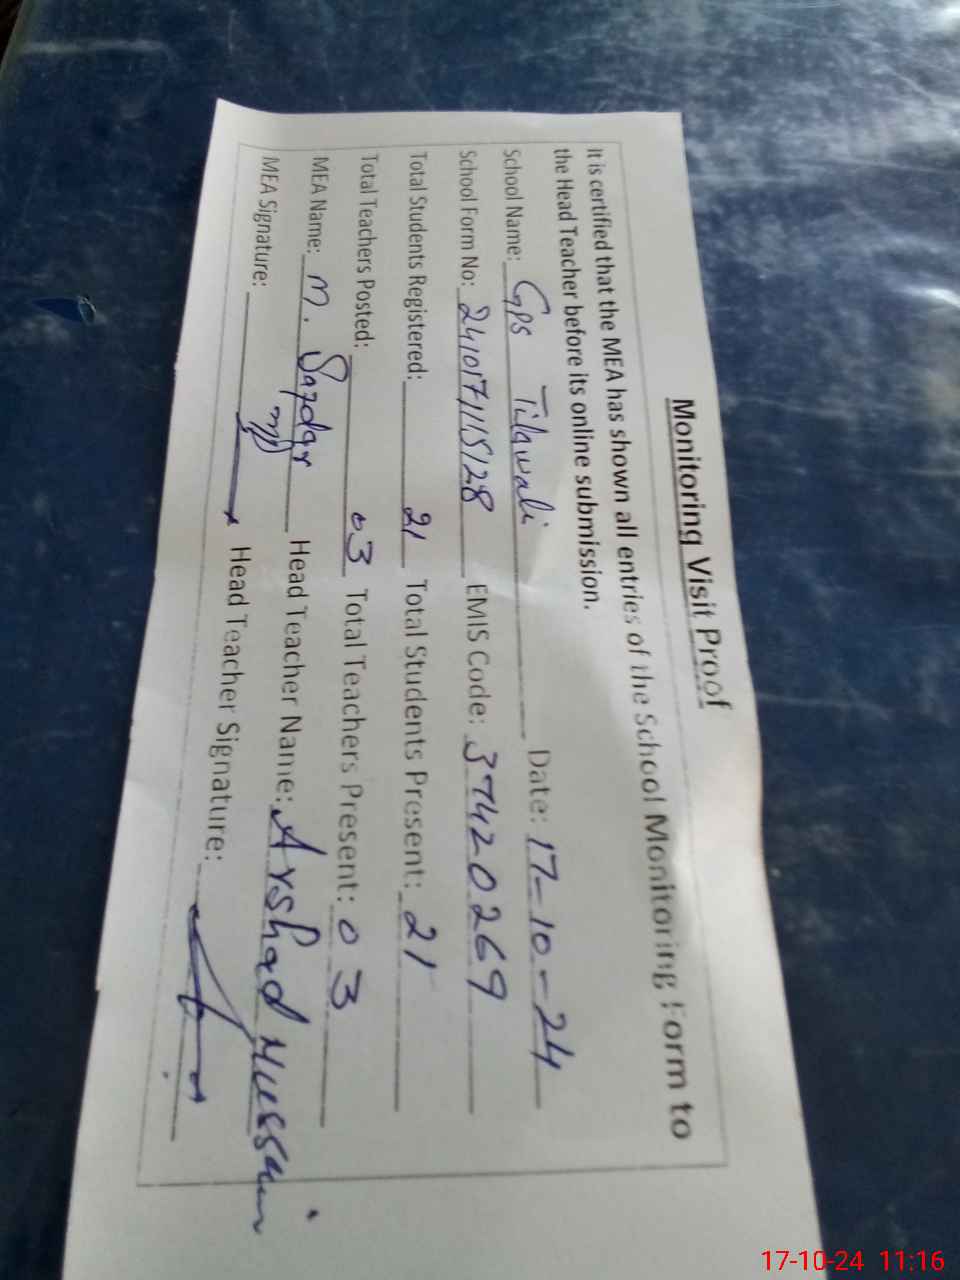 Monitoring Visit Proof
It is certified that the MEA has shown all entries of the School Monitoring Form to
the Head Teacher before its online submission.
School Name: GPS Tillawali Date: 17-10-24
School Form No: 2410171115128 EMIS Code: 37420269
Total Students Registered: 21 Total Students Present: 21
Total Teachers Posted: 03 Total Teachers Present: 03
MEA Name: M. Safdar Head Teacher Name: Arshad Hussain
MEA Signature: Head Teacher Signature:
17-10-24 11:16